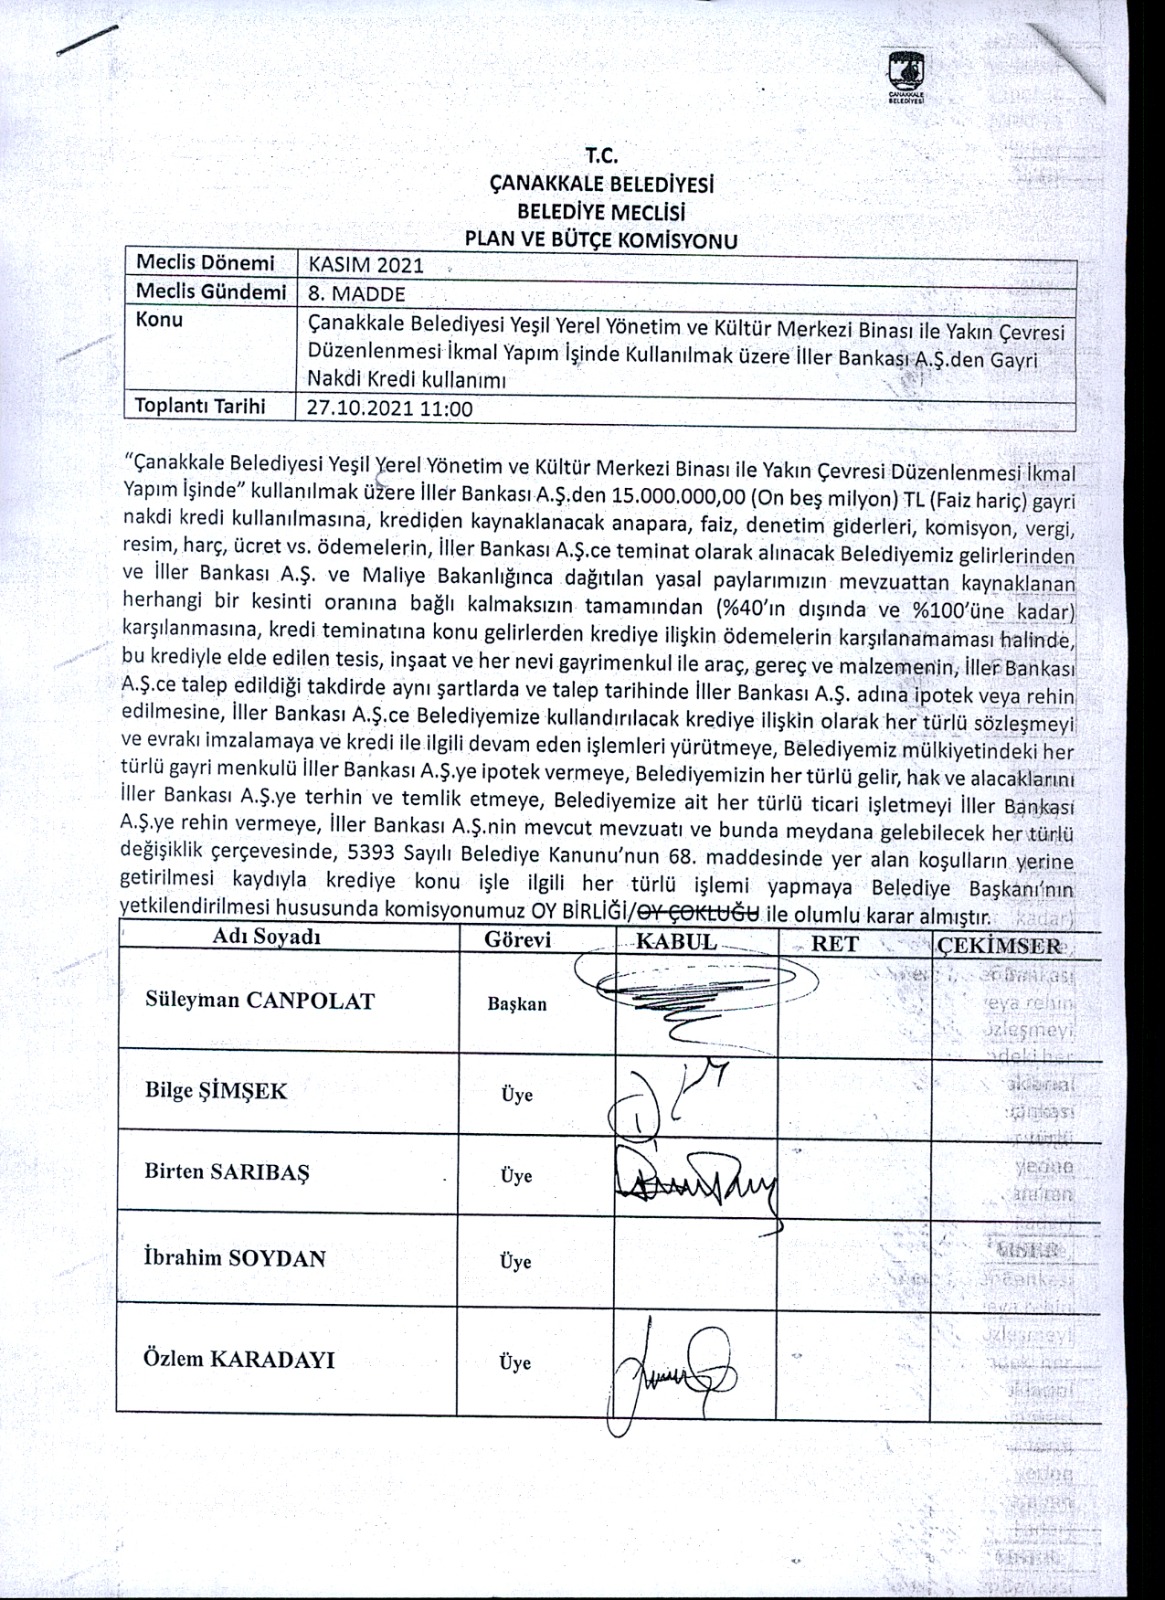 ÇANAKKALE
BELEDİYESİ
T.C.
ÇANAKKALE BELEDİYESİ
BELEDİYE MECLİSİ
PLAN VE BÜTÇE KOMİSYONU
Meclis Dönemi KASIM 2021
Meclis Gündemi 8. MADDE
Konu Çanakkale Belediyesi Yeşil Yerel Yönetim ve Kültür Merkezi Binası ile Yakın Çevresi
Düzenlenmesi İkmal Yapım İşinde Kullanılmak üzere İller Bankası A.Ş.den Gayri
Nakdi Kredi kullanımı
Toplantı Tarihi 27.10.2021 11:00
“Çanakkale Belediyesi Yeşil Yerel Yönetim ve Kültür Merkezi Binası ile Yakın Çevresi Düzenlenmesi İkmal
Yapım İşinde” kullanılmak üzere İller Bankası A.Ş.den 15.000.000,00 (On beş milyon) TL (Faiz hariç) gayri
nakdi kredi kullanılmasına, krediden kaynaklanacak anapara, faiz, denetim giderleri, komisyon, vergi,
resim, harç, ücret vs. ödemelerin, İller Bankası A.Ş.ce teminat olarak alınacak Belediyemiz gelirlerinden
ve İller Bankası A.Ş. ve Maliye Bakanlığınca dağıtılan yasal paylarımızın mevzuattan kaynaklanan
herhangi bir kesinti oranına bağlı kalmaksızın tamamından (%40’ın dışında ve %100’üne kadar)
karşılanmasına, kredi teminatına konu gelirlerden krediye ilişkin ödemelerin karşılanamaması halinde,
bu krediyle elde edilen tesis, inşaat ve her nevi gayrimenkul ile araç, gereç ve malzemenin, İller Bankası
A.Ş.ce talep edildiği takdirde aynı şartlarda ve talep tarihinde İller Bankası A.Ş. adına ipotek veya rehin
edilmesine, İller Bankası A.Ş.ce Belediyemize kullandırılacak krediye ilişkin olarak her türlü sözleşmeyi
ve evrakı imzalamaya ve kredi ile ilgili devam eden işlemleri yürütmeye, Belediyemiz mülkiyetindeki her
türlü gayri menkulü İller Bankası A.Ş.ye ipotek vermeye, Belediyemizin her türlü gelir, hak ve alacaklarını
İller Bankası A.Ş.ye terhin ve temlik etmeye, Belediyemize ait her türlü ticari işletmeyi İller Bankası
A.Ş.ye rehin vermeye, İller Bankası A.Ş.nin mevcut mevzuatı ve bunda meydana gelebilecek her türlü
değişiklik çerçevesinde, 5393 Sayılı Belediye Kanunu’nun 68. maddesinde yer alan koşulların yerine
getirilmesi kaydıyla krediye konu işle ilgili her türlü işlemi yapmaya Belediye Başkanı’nın
yetkilendirilmesi hususunda komisyonumuz OY BİRLİĞİ/OY ÇOKLUĞU ile olumlu karar almıştır.
Adı Soyadı Görevi KABUL RET ÇEKİMSER
Süleyman CANPOLAT Başkan
Bilge ŞİMŞEK Üye
Birten SARIBAŞ Üye
İbrahim SOYDAN Üye
Özlem KARADAYI Üye